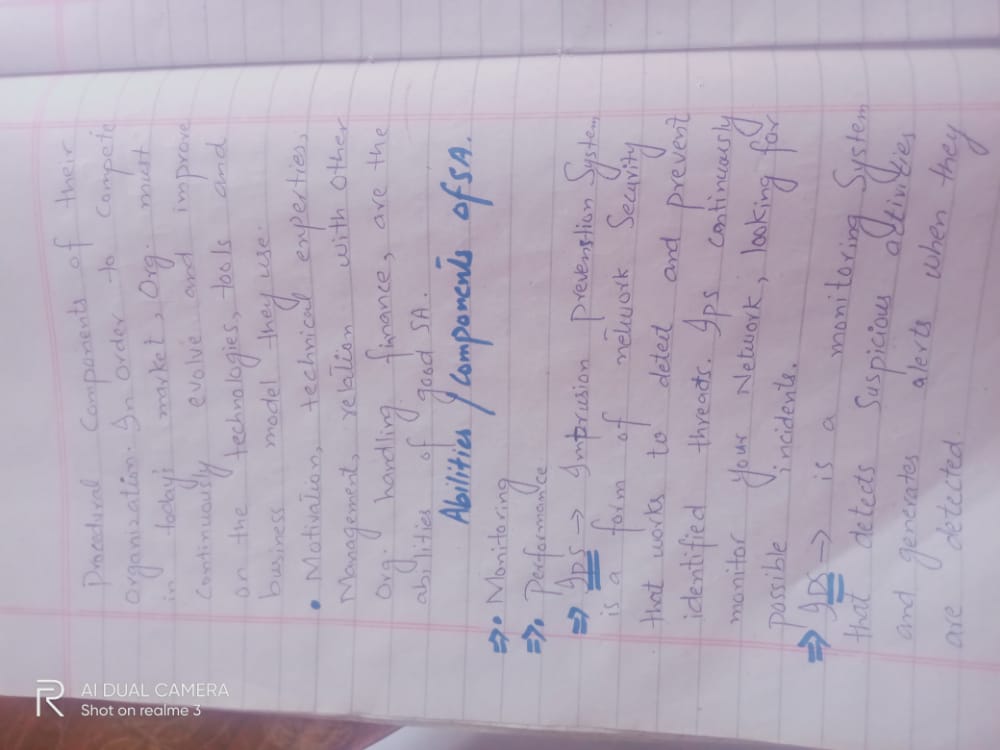 Procedural Components of their
organization. In order to compete
in today's market, Org. must
continuously evolve and improve
on the technologies, tools and
business model they use.
• Motivation, technical experties,
Management, relation with other
Org. handling finance, are the
abilities of good SA.
Abilities / Components of SA.
⇒• Monitoring
⇒• Performance
⇒ IPS → Intrusion Prevenstion System
is a form of network Security
that works to detect and prevent
identified threads. Ips continuously
monitor your Network, looking for
possible incidents.
⇒ → is a monitoring System
that detects Suspicious activities
and generates alerts when they
are detected
AI DUAL CAMERA
Shot on realme 3